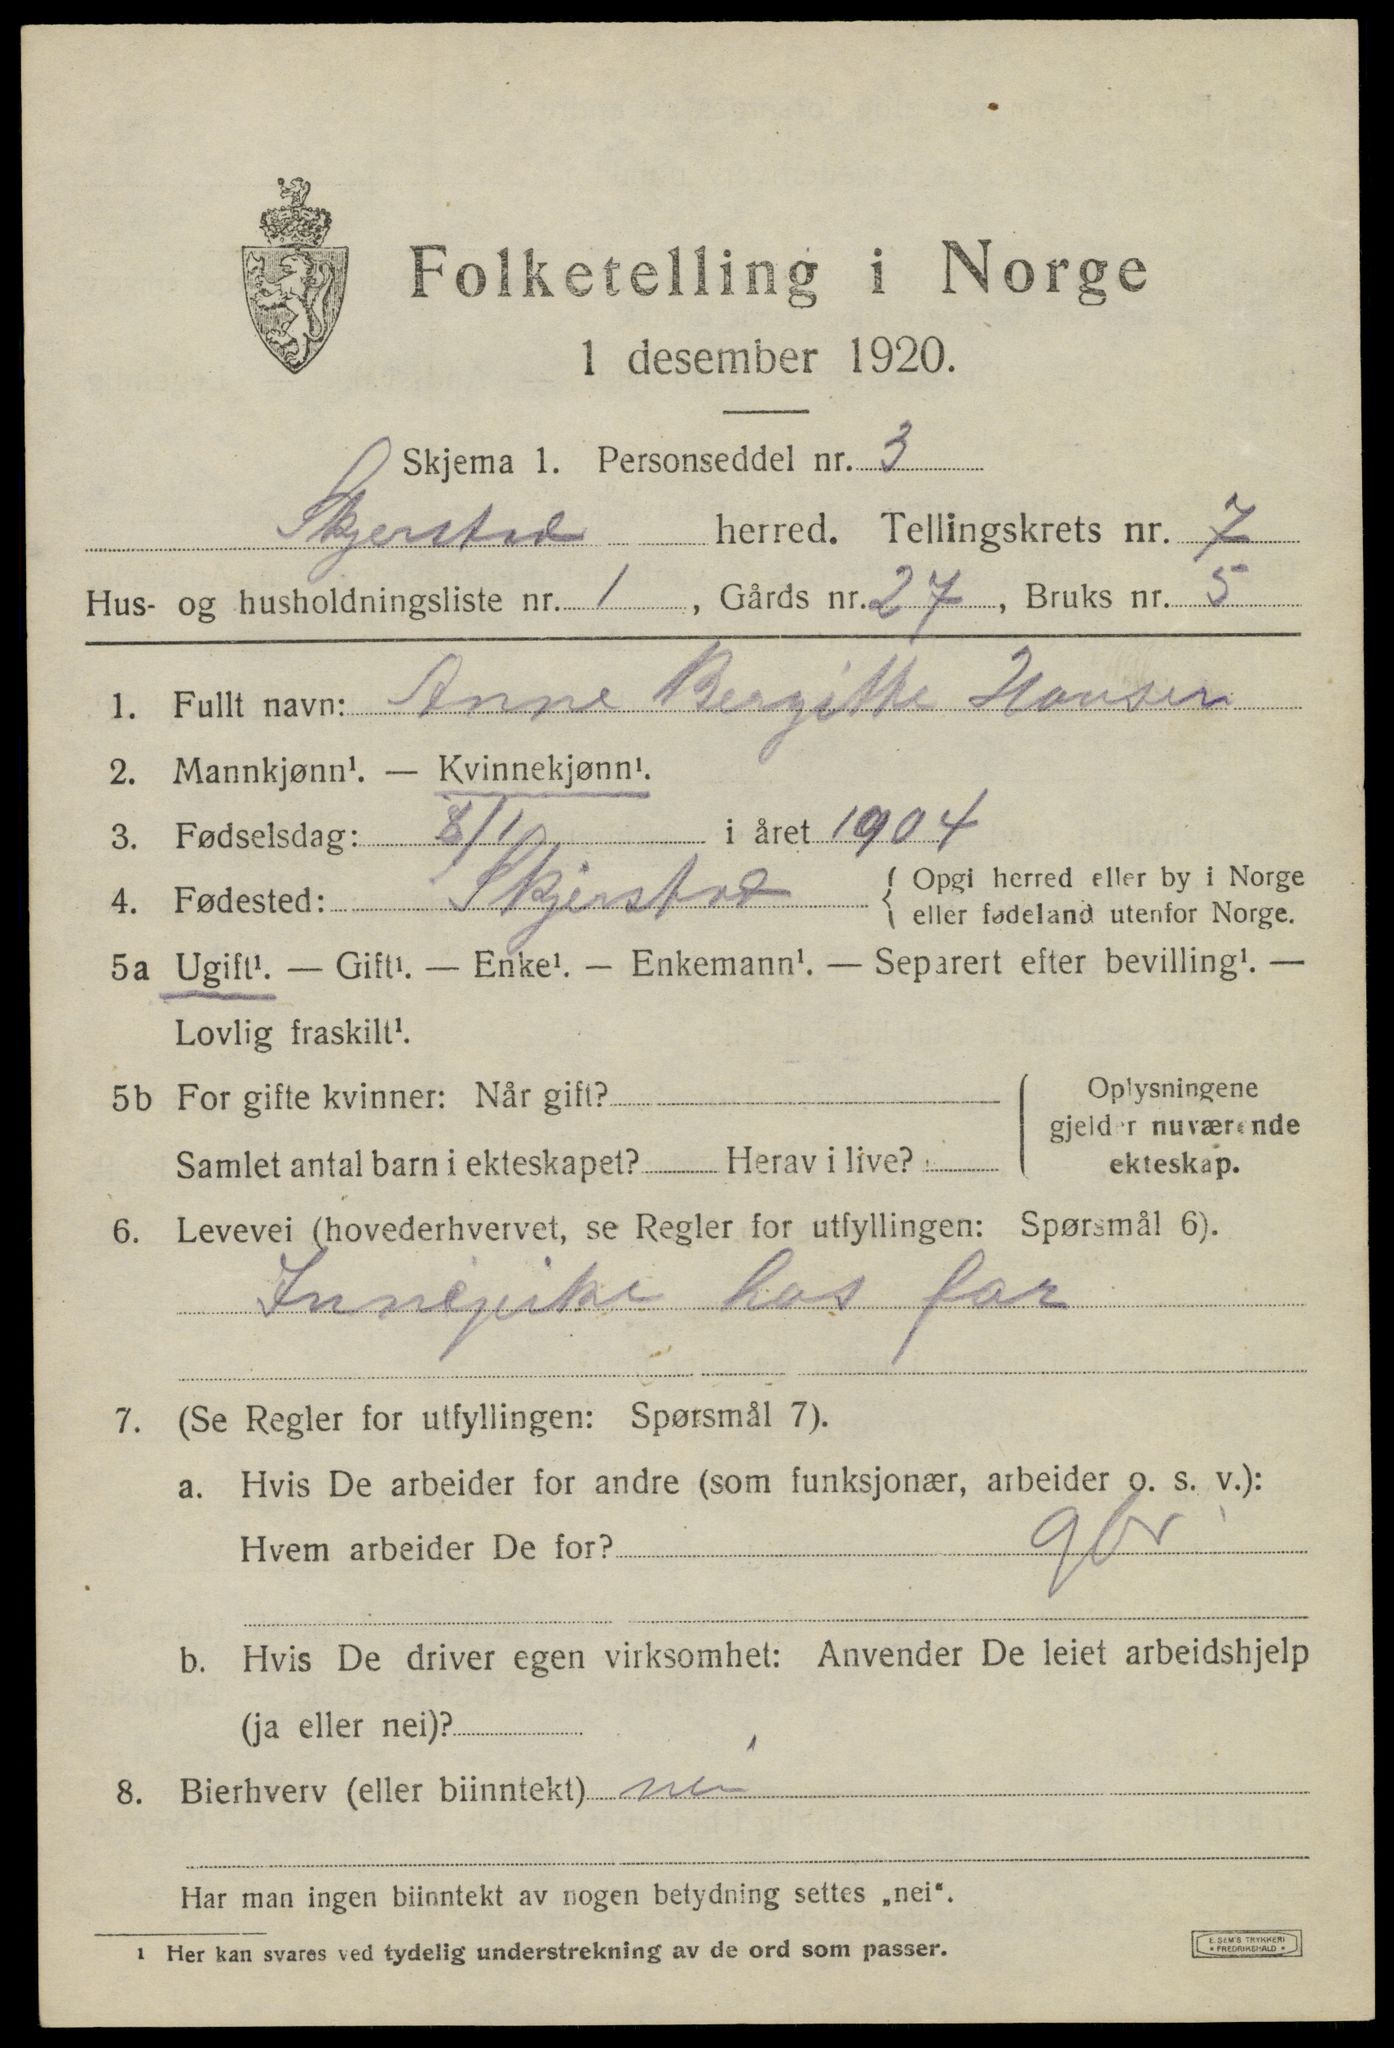 Folketelling i Norge
1 desember 1920.
Skjema 1. Personseddel nr. 3
Skjerstad herred. Tellingskrets nr. 7
Hus- og husholdningsliste nr. 1, Gårds nr. 27, Bruks nr. 5
1. Fullt navn: Anne Bergithe Hansen
2. Mannkjønn¹. — Kvinnekjønn¹.
3. Fødselsdag: 8/1 i året 1904
4. Fødested: Skjerstad { Opgi herred eller by i Norge
eller fødeland utenfor Norge.
5a Ugift¹. — Gift¹. — Enke¹. — Enkemann¹. — Separert efter bevilling¹. —
Lovlig fraskilt¹.
5b For gifte kvinner: Når gift?
Samlet antal barn i ekteskapet? Herav i live?
Oplysningene
gjelder nuværende
ekteskap.
6. Levevei (hovederhvervet, se Regler for utfyllingen: Spørsmål 6).
Innepike hos far
7. (Se Regler for utfyllingen: Spørsmål 7).
a. Hvis De arbeider for andre (som funksjonær, arbeider o. s. v.):
Hvem arbeider De for?
b. Hvis De driver egen virksomhet: Anvender De leiet arbeidshjelp
(ja eller nei)?
8. Bierhverv (eller biinntekt) nei
Har man ingen biinntekt av nogen betydning settes „nei".
1 Her kan svares ved tydelig understrekning av de ord som passer.
E. SEM'S TRYKKERI
* FREDRIKSHALD *